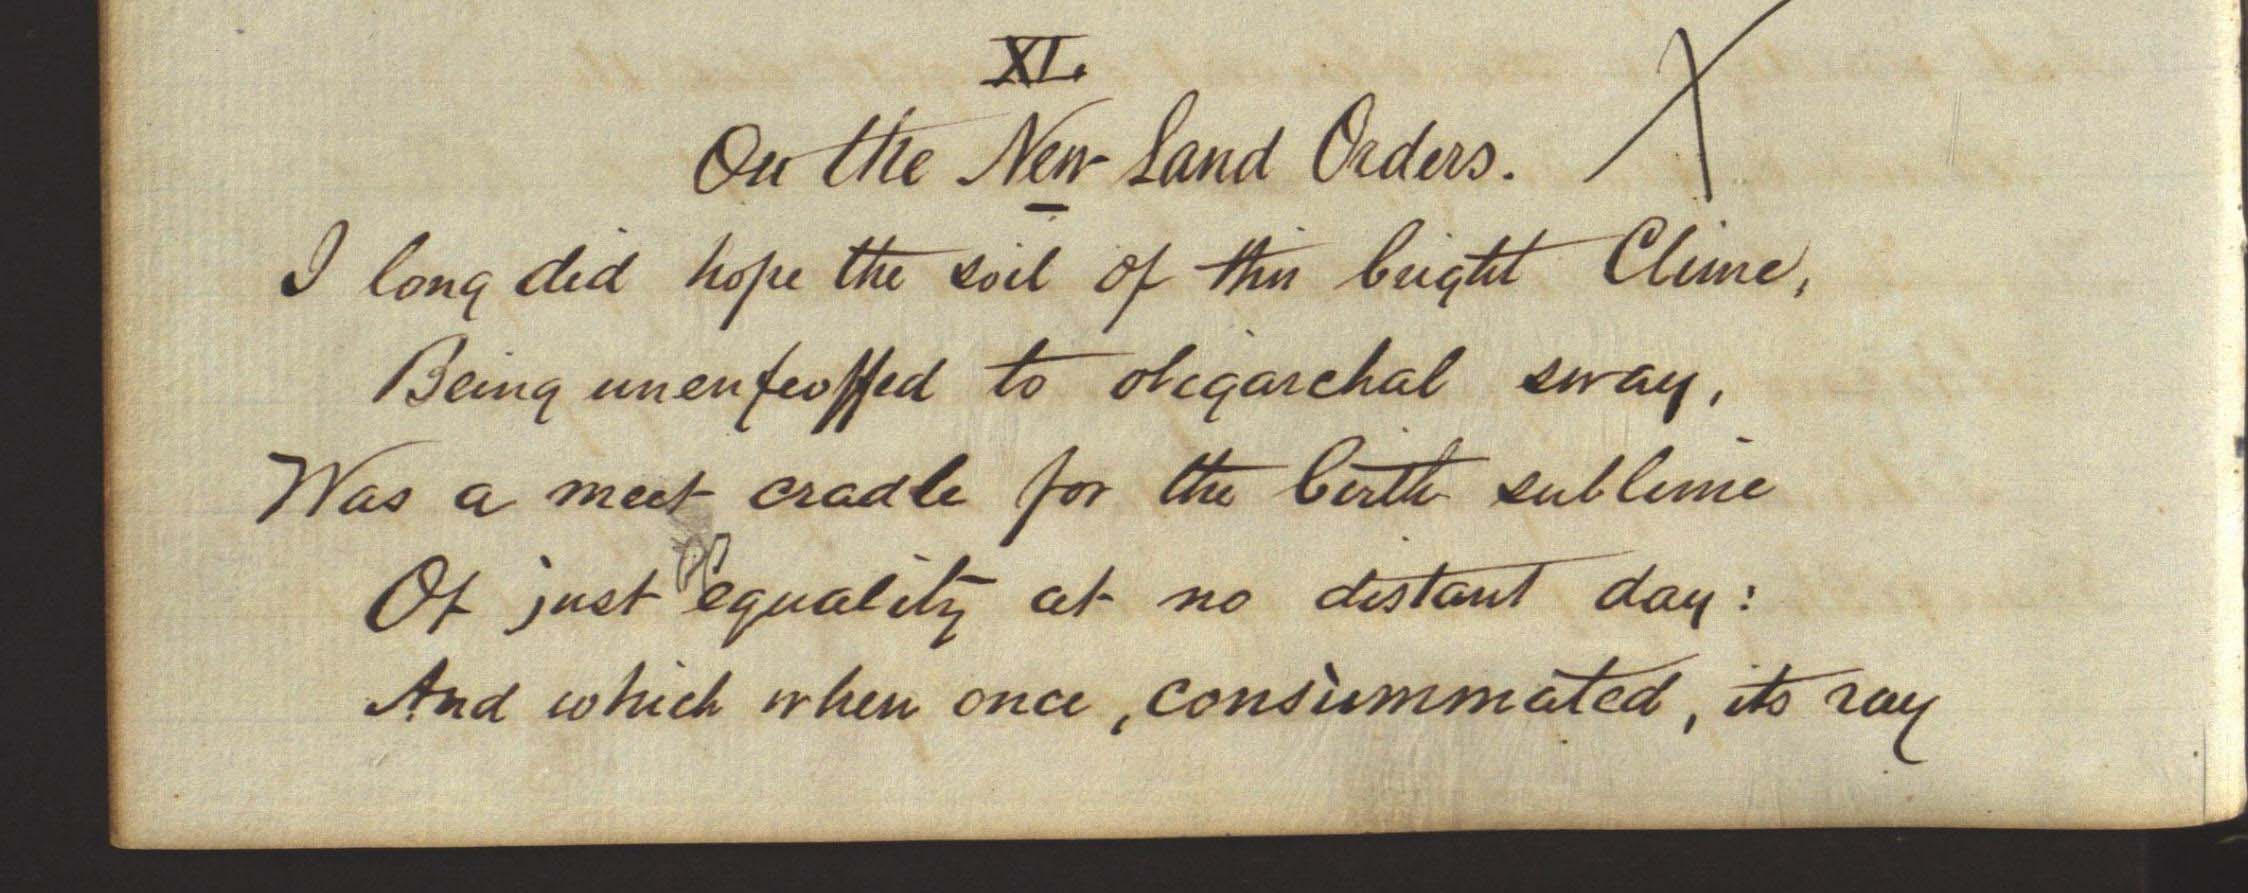 XL.
On the New Land Orders.
I long did hope the soil of this bright Clime,
Being unenfeoffed to oligarchal sway,
Was a meet cradle for the birth sublime
Of just equality at no distant day:
And which when once, consummated, its ray